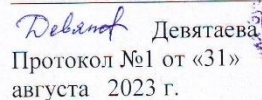 Девятаева
Протокол №1 от «31»
августа 2023 г.